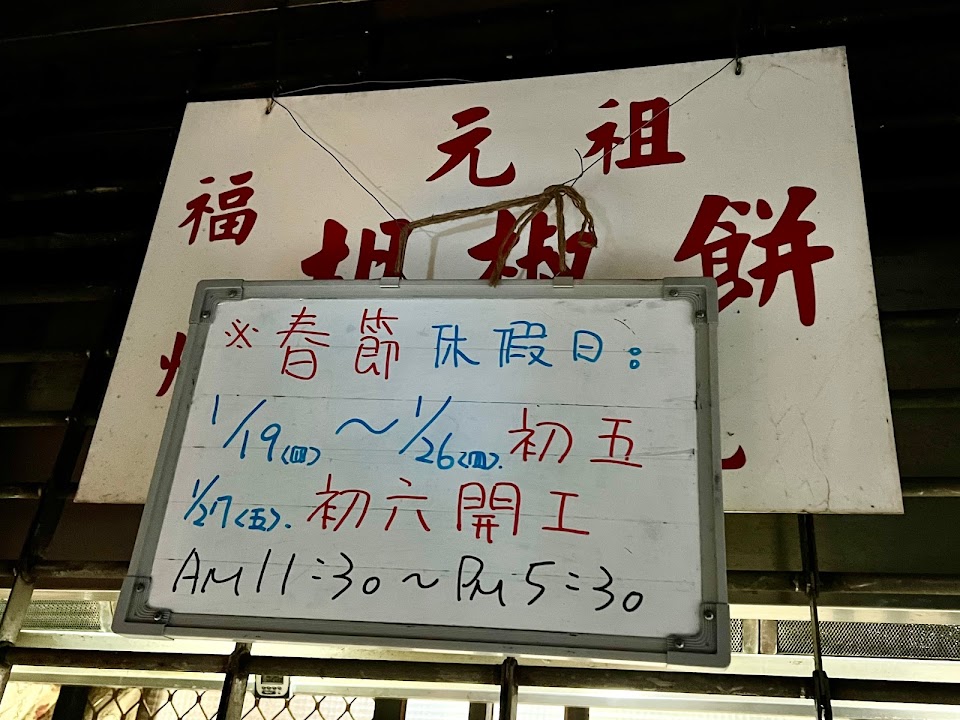 元祖
福
胡椒餅
※春節休假日：
1/19(四)～1/26(四).初五
1/27(五).初六開工
AM11:30～PM5:30